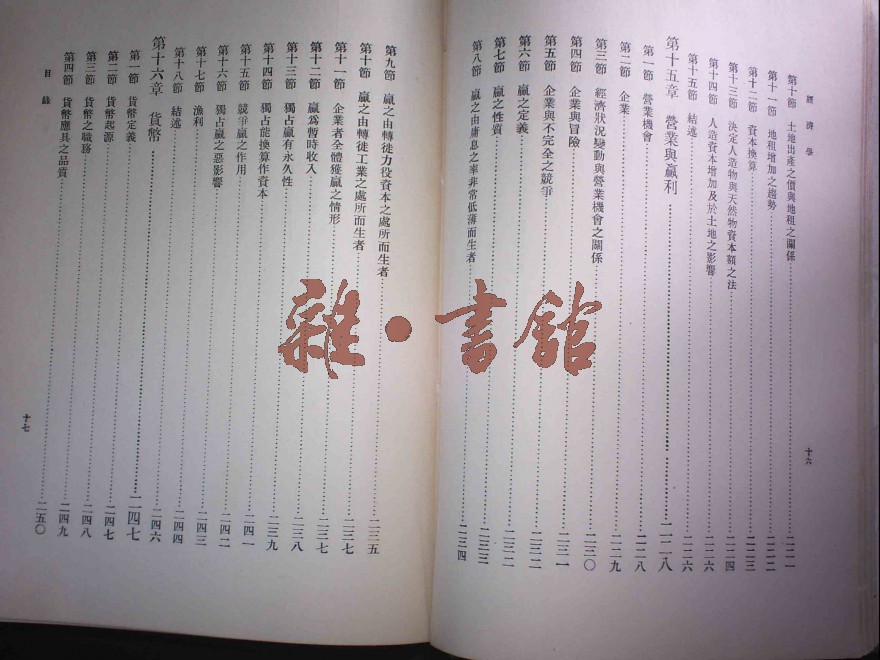 經濟學
第十節 土地出產之價與地租之關係……二二一
第十一節 地租增加之趨勢……二二二
第十二節 資本換算……二二三
第十三節 決定人造物與天然物資本額之法……二二四
第十四節 人造資本增加及於土地之影響……二二六
第十五節 結述……二二六
第十五章 營業與贏利……二二八
第一節 營業機會……二二八
第二節 企業……二二九
第三節 經濟狀況變動與營業機會之關係……二三〇
第四節 企業與冒險……二三一
第五節 企業與不完全之競爭……二三二
第六節 贏之定義……二三二
第七節 贏之性質……二三三
第八節 贏之由庸息之率非常低薄而生者……二三四
十六
第九節 贏之由轉徙力役資本之處所而生者……二三五
第十節 贏之由轉徙工業之處所而生者……二三七
第十一節 企業者全體獲贏之情形……二三七
第十二節 贏爲暫時收入……二三八
第十三節 獨占贏有永久性……二三九
第十四節 獨占能換算作資本……二四一
第十五節 競爭贏之作用……二四二
第十六節 獨占贏之惡影響……二四三
第十七節 漁利……二四四
第十八節 結述……二四六
第十六章 貨幣……二四七
第一節 貨幣定義……二四七
第二節 貨幣起源……二四八
第三節 貨幣之職務……二四九
第四節 貨幣應具之品質……二五〇
目錄
十七
雜·書館